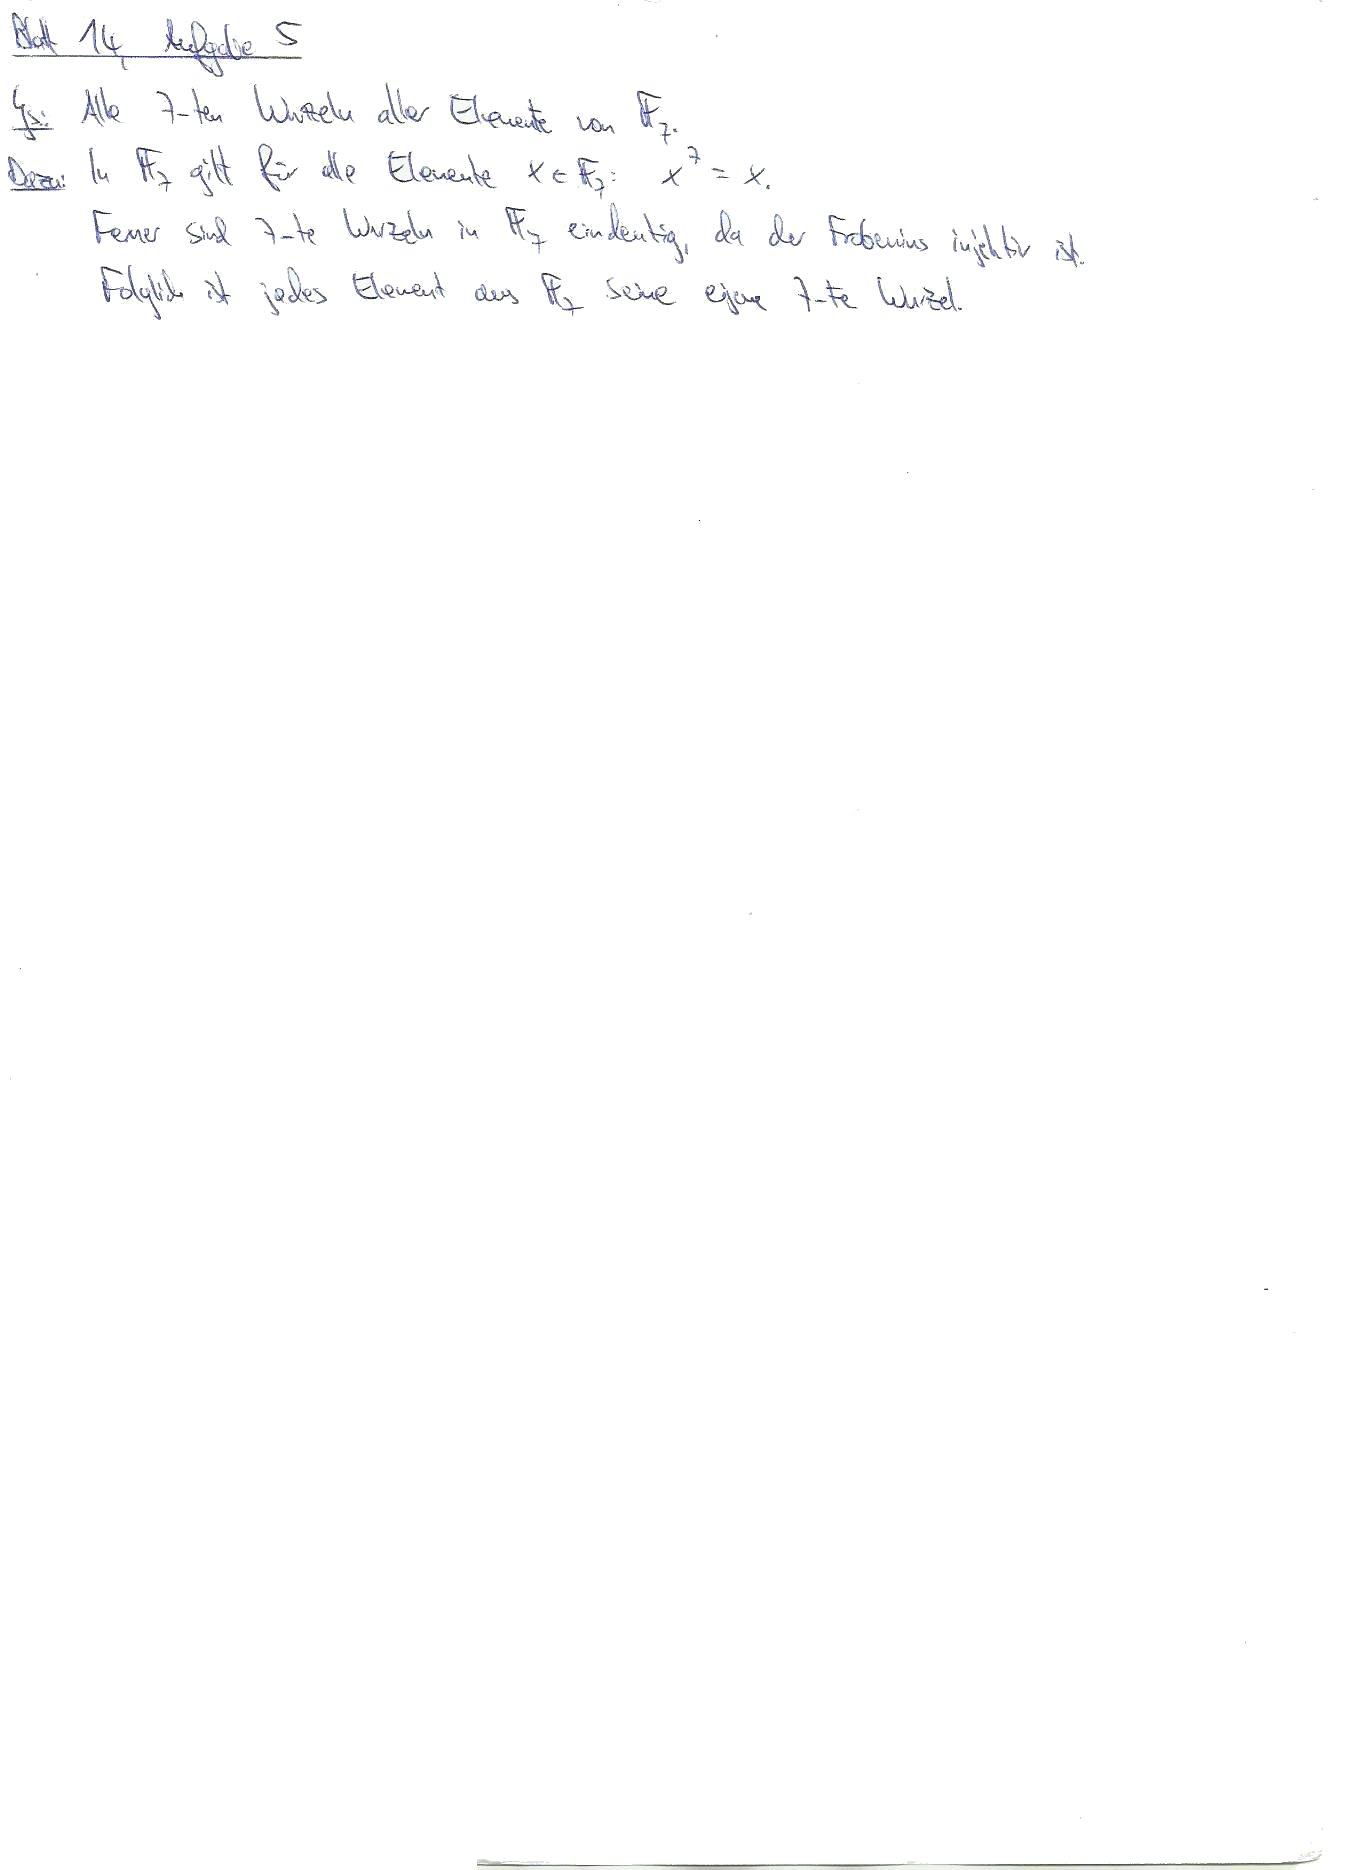 Blatt 14, Aufgabe 5
Gs: Alle 7-ten Wurzeln aller Elemente von 𝔽₇.
Dazu: In 𝔽₇ gilt für alle Elemente x ∈ 𝔽₇: x⁷ = x.
Ferner sind 7-te Wurzeln in 𝔽₇ eindeutig, da der Frobenius injektiv ist.
Folglich ist jedes Element aus 𝔽₇ seine eigene 7-te Wurzel.